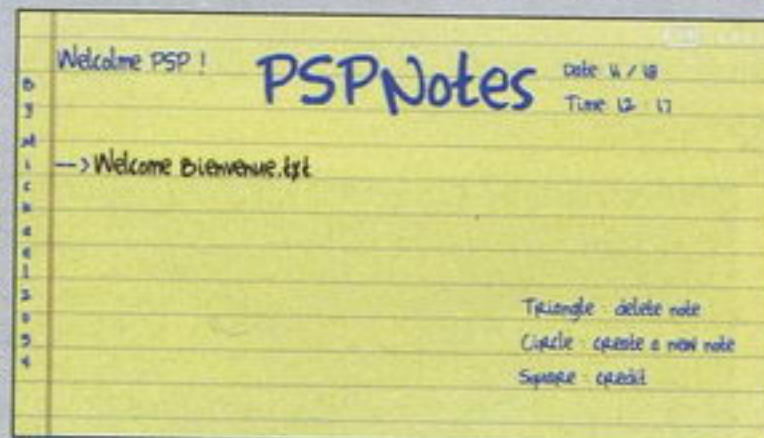 Welcolme PSP !
PSPNotes
Date 11 / 18
Time 12 : 17
By Michael3094
--> Welcome Bienvenue.txt
Triangle : delete note
Circle : create a new note
Square : credit